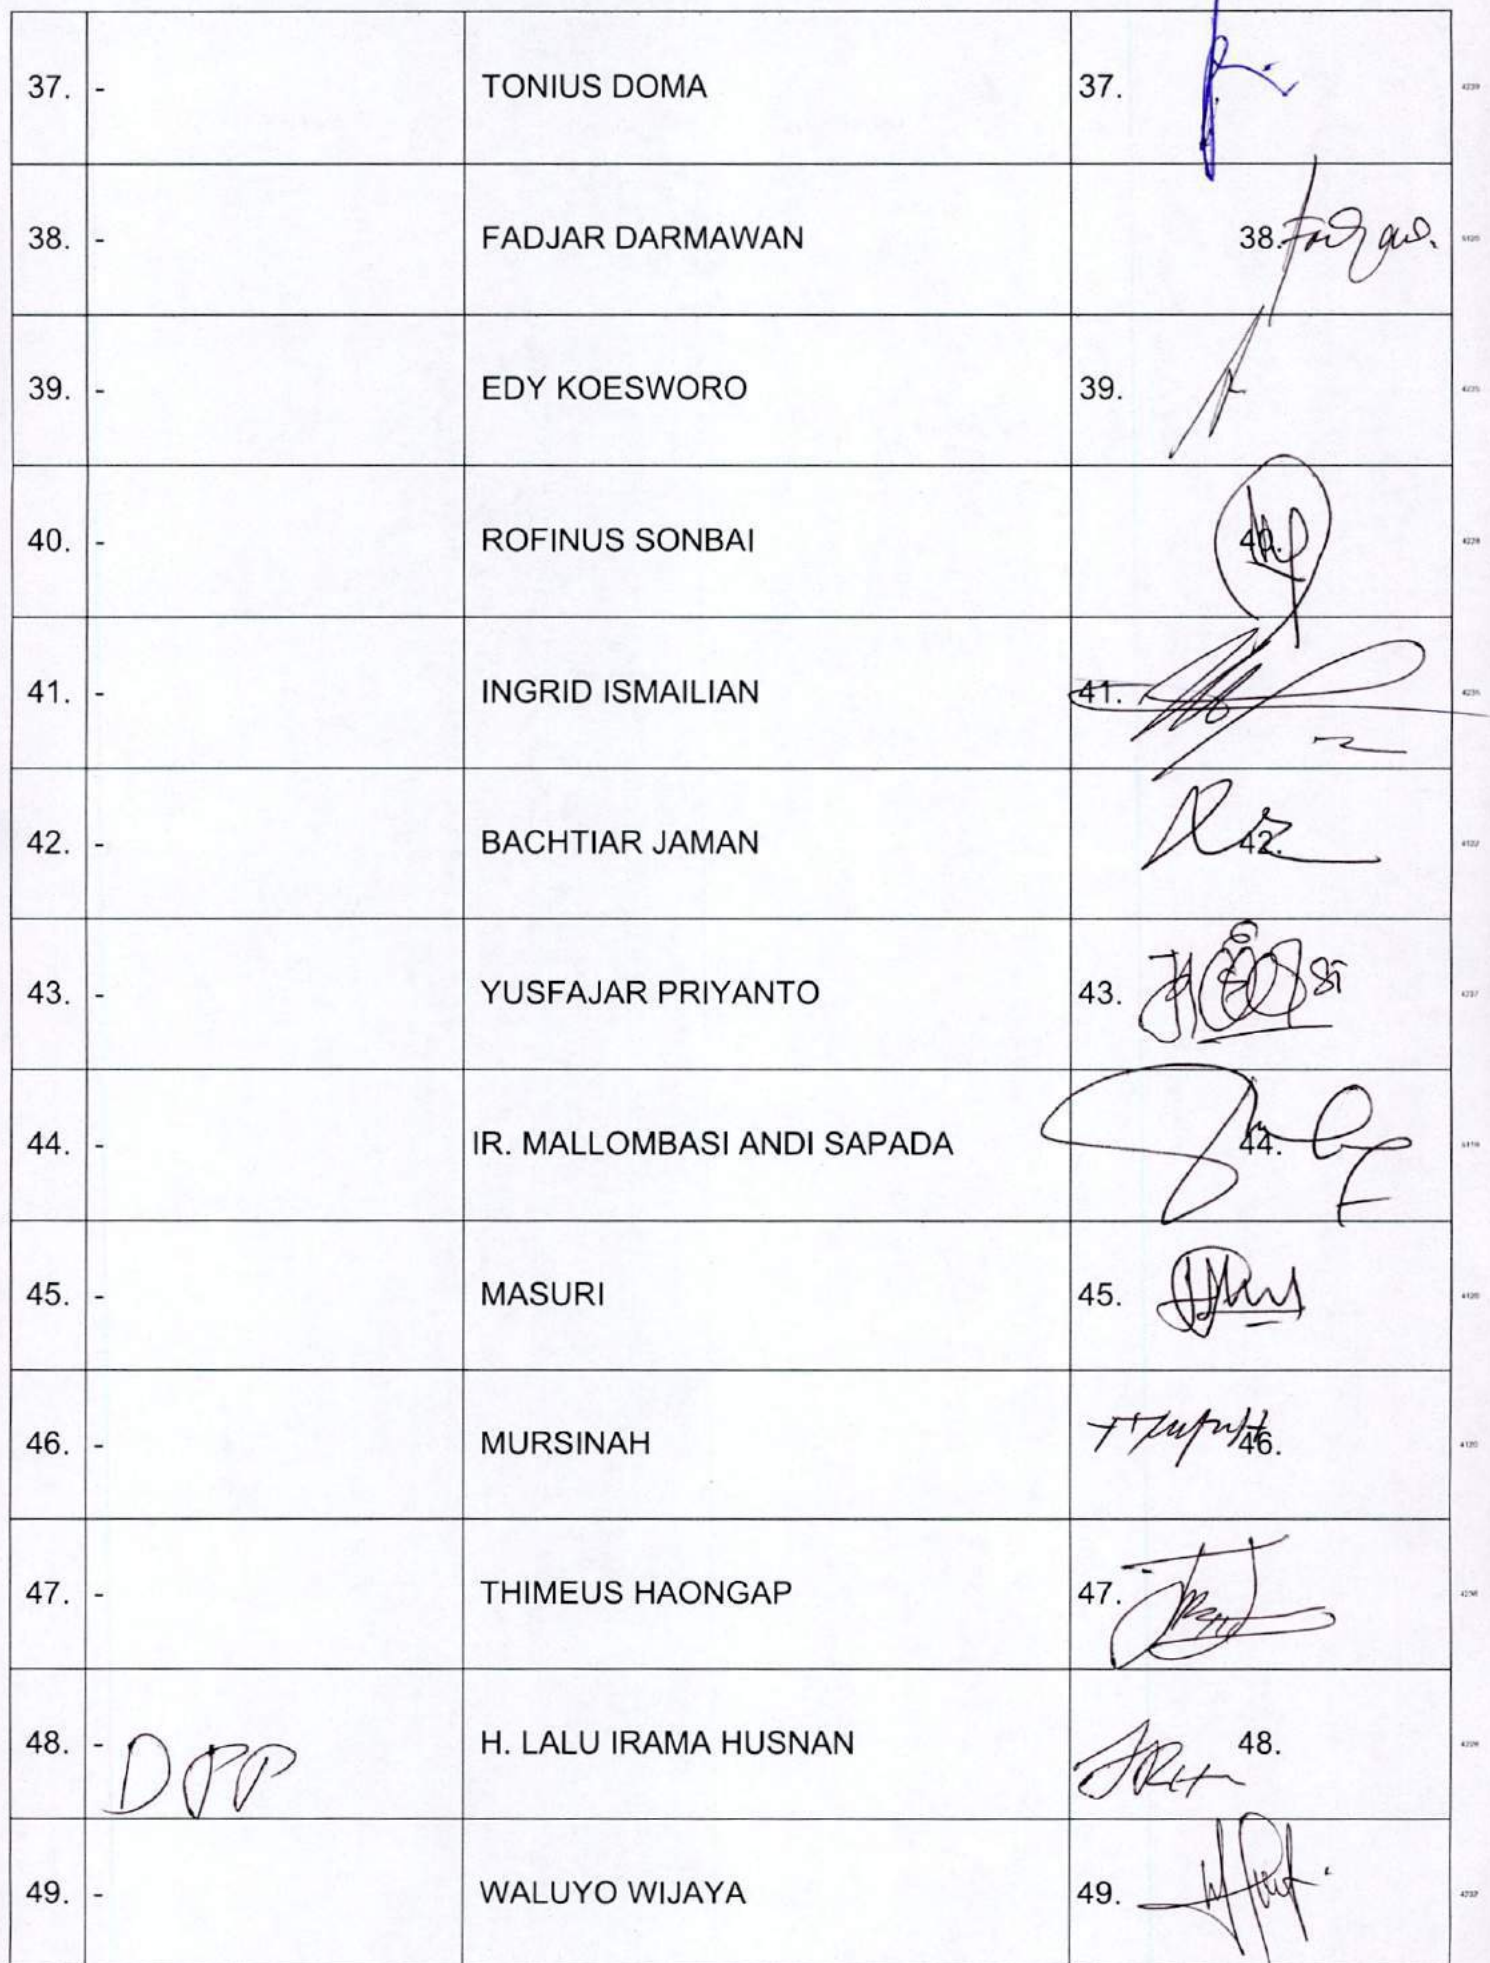 37. - TONIUS DOMA 37.
38. - FADJAR DARMAWAN 38.
39. - EDY KOESWORO 39.
40. - ROFINUS SONBAI 40.
41. - INGRID ISMAILIAN 41.
42. - BACHTIAR JAMAN 42.
43. - YUSFAJAR PRIYANTO 43.
44. - IR. MALLOMBASI ANDI SAPADA 44.
45. - MASURI 45.
46. - MURSINAH 46.
47. - THIMEUS HAONGAP 47.
48. - DPP H. LALU IRAMA HUSNAN 48.
49. - WALUYO WIJAYA 49.